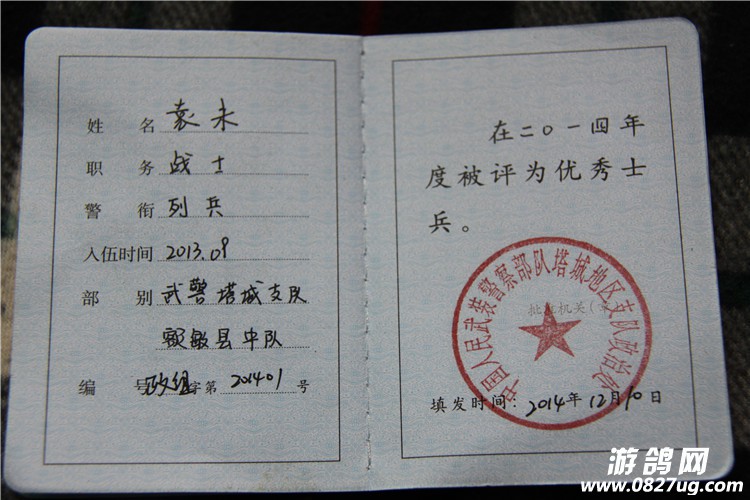 姓 名 袁未
职 务 战士
警 衔 列兵
入伍时间 2013.09
部 别 武警塔城支队
额敏县中队
编 号 政组字第 201401 号
在二〇一四年
度被评为优秀士
兵。
中国人民武装警察部队塔城地区支队政治处
批准机关(章
填发时间：2014年12月10日
游鸽网
www.0827ug.com